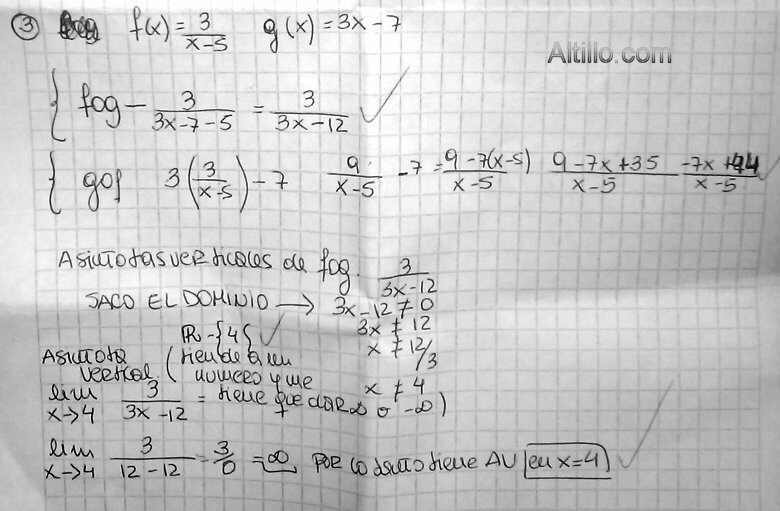 ③ f(x) = 3/(x-5) g(x) = 3x-7
Altillo.com
{ fog - 3/(3x-7-5) = 3/(3x-12) ✓
{ gof 3(3/(x-5)) - 7 9/(x-5) - 7 = (9-7(x-5))/(x-5) (9-7x+35)/(x-5) (-7x+44)/(x-5) ✓
Asintotas verticales de fog. 3/(3x-12)
SACO EL DOMINIO → 3x-12 ≠ 0
3x ≠ 12
R-{4} ✓ x ≠ 12/3
Asintota vertical. (tiende a un numero y me x ≠ 4
lim x→4 3/(3x-12) = tiene que dar ∞ o -∞)
lim x→4 3/(12-12) = 3/0 = ∞ Por lo tanto tiene AV en x=4 ✓